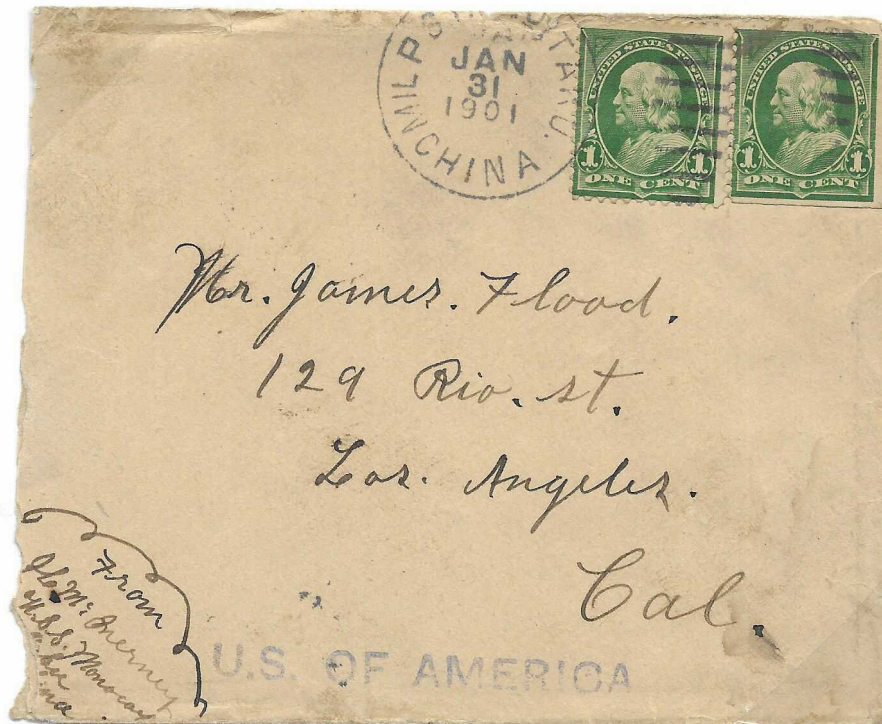 MIL. P. STA.
JAN
31
1901
CHINA.
UNITED STATES POSTAGE
1 1
ONE CENT
UNITED STATES POSTAGE
1 1
ONE CENT
Mr. James. Flood.
129 Rio. st.
Los. Angeles.
Cal.
From
Mc Inerney
U.S.S. Monocacy
U.S. OF AMERICA